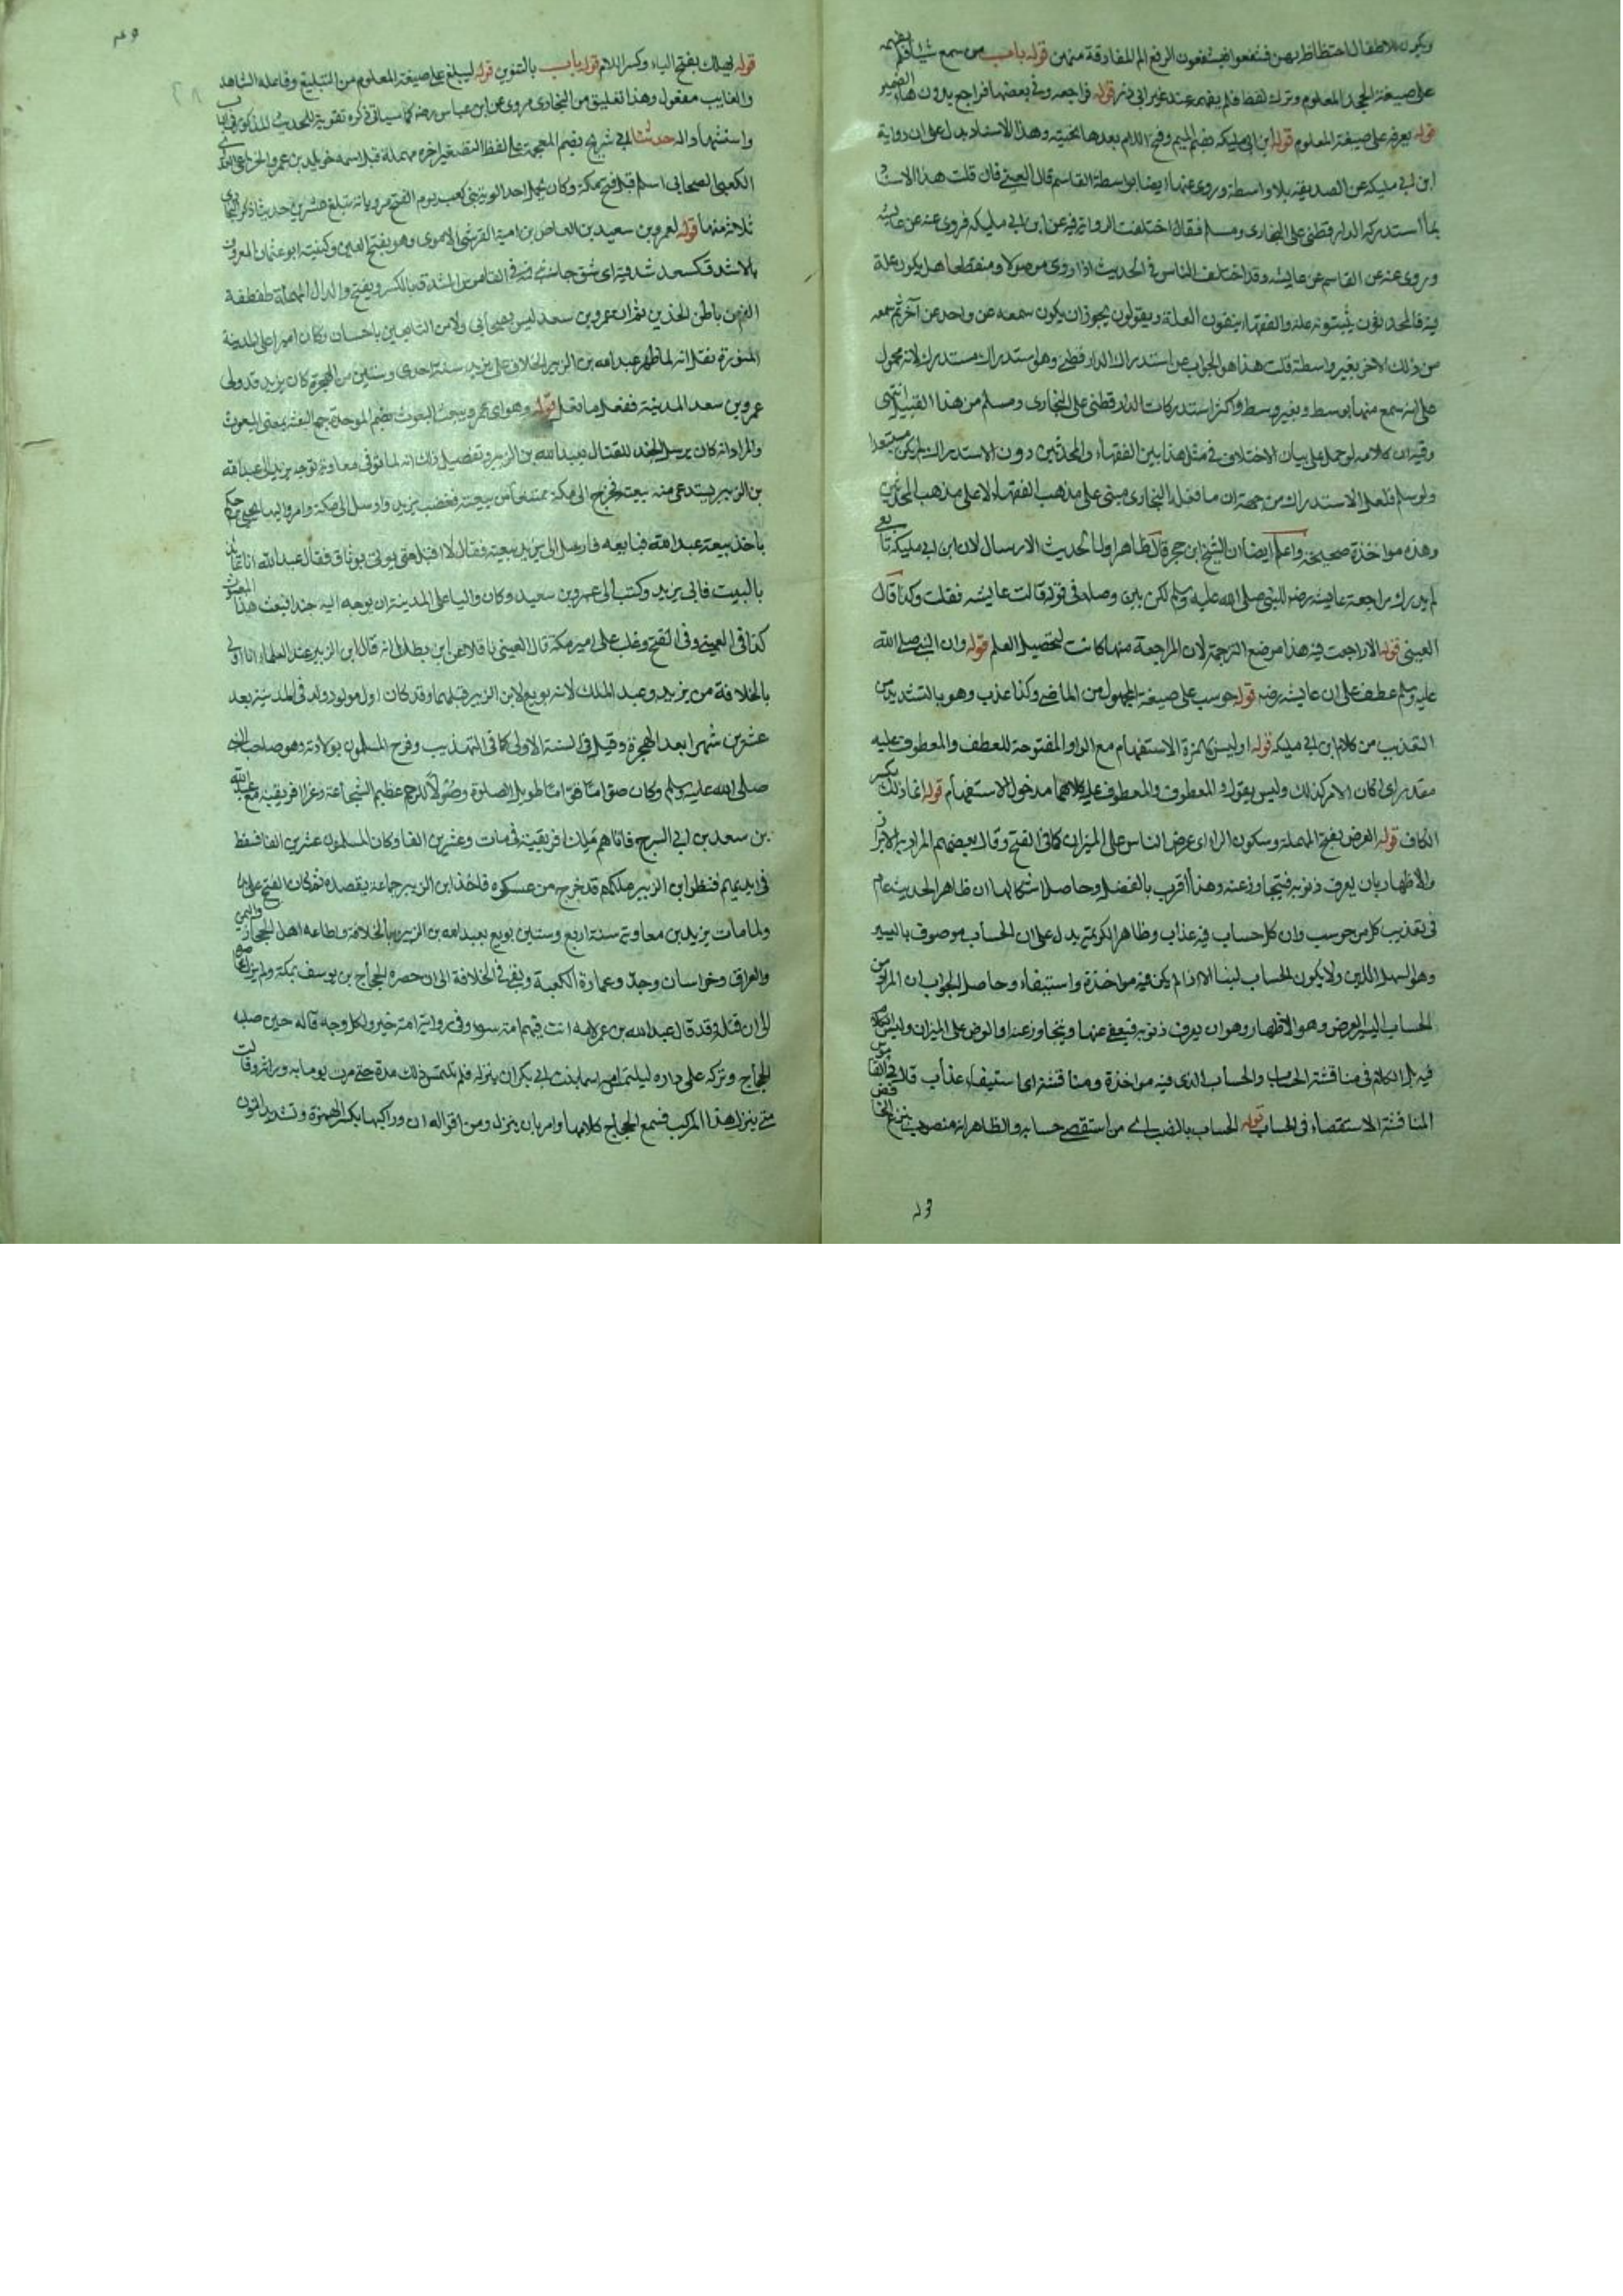 ويكون للاطفال احتظاظ بهن فشفعوا فيشفعون الرفع الم للمفارقة منهن قوله باب من سمع شيئا فلم يفهمه
على صيغة المجرد المعلوم وترك لفظ فلم يفهمه عند غير ابي ذر قوله فراجعه وفي بعضها فراجع بدون هاء الضمير
قوله يعرفه على صيغة المعلوم قوله ابن ابي مليكة بضم الميم وفتح اللام بعدها تحتية وهذا الاسناد يدل على ان رواية
ابن ابي مليكة عن الصديقة بلا واسطة وروى عنها ايضا بواسطة القاسم قال العيني فان قلت هذا الاسناد
مما استدركه الدارقطني على البخاري ومسلم فقال اختلفت الرواية فيه عن ابن ابي مليكة فروى عنه عن عايشة
وروى عنه عن القاسم عن عايشة وقد اختلف الناس في الحديث اذا روى موصولا ومنقطعا هل يكون علة
فيه فالمحدثون يثبتونه علة والفقهاء ينفون العلة ويقولون يجوز ان يكون سمعه عن واحد عن آخر ثم سمعه
من ذلك الاخر بغير واسطة قلت هذا هو الجواب عن استدراك الدارقطني وهو استدراك مستدرك لانه محمول
على انه سمع منها بوسط وبغير وسط واكثر استدركات الدارقطني على البخاري ومسلم من هذا القبيل انتهى
وفيه ان كلامه لو حمل على بيان الاختلاف في مثل هذا بين الفقهاء والمحدثين دون الاستدراك لم يكن مستبعدا
ولو سلم فلعل الاستدراك من جهة ان ما فعله البخاري مبنى على مذهب الفقهاء لا على مذهب المحدثين
وهذه مواخذة صحيحة واعلم ايضا ان الشيخ ابن حجر قال ظاهر اول الحديث الارسال لان ابن ابي مليكة تابعي
لم يدرك مراجعة عايشة رضه للنبي صلى الله عليه وسلم لكن بين وصله في قوله قالت عايشة فقلت وكذا قال
العيني قوله الا راجعت فيه هذا موضع الترجمة لان المراجعة منها كانت لتحصيل العلم قوله وان النبي صلى الله
عليه وسلم عطف على ان عايشة رضه قوله حوسب على صيغة المجهول من الماضي وكذا عذب وهو بالتشديد من
التعذيب من كلام ابن ابي مليكة قوله اوليس كا همزة الاستفهام مع الواو المفتوحة للعطف والمعطوف عليه
مقدر اي اكان الامر كذلك وليس يقول و المعطوف والمعطوف عليه كلاهما مدخول الاستفهام قوله انما ذلك بكسر
الكاف قوله العرض بفتح المهملة وسكون الراء اي عرض الناس على الميزان كما في الفتح وقال بعضهم المراد به الابراز
والاظهار بان يعرف ذنوبه فيتجاوز عنه وهذا اقرب بالفضل وحاصل اشكالها ان ظاهر الحديث عام
في تعذيب كل من حوسب وان كل حساب فيه عذاب وظاهر الكريمة يدل على ان الحساب موصوف باليسير
وهو السهل اللين ولا يكون الحساب لينا الا اذا لم يكن فيه مواخذة واستيفاء وحاصل الجواب ان المراد من
الحساب اليسير العرض وهو الاظهار وهو ان يعرف ذنوبه فيعفى عنها ويتجاوز عنه او العرض على الميزان وليس الكلام
فيه بل الكلام في مناقشة الحساب والحساب الذي فيه مواخذة ومناقشة اي استيفاء عذاب قال في القاموس
المناقشة الاستقصاء في الحساب قوله الحساب بالنصب اي من استقصى حسابه والظاهر انه منصوب بنزع الخافض
قوله يهلك بفتح الياء وكسر اللام قوله باب بالتنوين قوله ليبلغ على صيغة المعلوم من التبليغ وفاعله الشاهد
والغايب مفعول وهذا تعليق من البخاري مروى عن ابن عباس رضه كما سياتي ذكره تقوية للحديث المذكور في الباب
واستشهادا له حدثنا ابي شريح بضم المعجمة على لفظ التصغير اخره مهملة قيل اسمه خويلد بن عمرو الخزاعي
الكعبي الصحابي اسلم قبل فتح مكة وكان يحمل احد الوية بني كعب يوم الفتح مروياته تبلغ عشرين حديثا ذكر البخاري
ثلاثة منها قوله لعمرو بن سعيد بن العاص بن امية القرشي الاموي وهو بفتح العين وكنيته ابو عثمان المعروف
بالاشدق
الفم من باطن الخدين ثم ان عمرو بن سعد ليس بصحابي ولا من التابعين باحسان وكان اميرا على المدينة
المنورة نقل انه لما ظهر عبد الله بن الزبير الخلاف على يزيد سنة احدى وستين من الهجرة كان يزيد قد ولى
عمرو بن سعد المدينة ففعل ما فعل قوله وهو اي عمرو يبعث البعوث بضم الموحدة جمع البعث بمعنى المبعوث
والمراد انه كان يرسل الجند للقتال بعبد الله بن الزبير وتفصيل ذلك انه لما توفى معاوية توجه يزيد الى عبد الله
بن الزبير يستدعي منه بيعته فخرج الى مكة ممتنعا من بيعته فغضب يزيد وارسل الى مكة وامر واليها يحيى بن حكم
باخذ بيعة عبد الله فبايعه فارسل الى يزيد بيعته فقال لا اقبل حتى يوتى بوثاق فقال عبد الله انا عائذ
بالبيت فابى يزيد وكتب الى عمرو بن سعيد وكان واليا على المدينة ان يوجه اليه جندا فبعث هذا المبعوث
كذا في العيني وفي الفتح وغلب على امير مكة قال العيني ناقلا عن ابن بطال انه قال ابن الزبير عند العلماء اولى
بالخلافة من يزيد وعبد الملك لانه بويع لابن الزبير قبلهما وقد كان اول مولود ولد في المدينة بعد
عشرين شهرا بعد الهجرة وقيل في السنة الاولى كما في التهذيب وفرح المسلمون بولادته وهو صاحب النبي
صلى الله عليه وسلم وكان صواما قواما طويل الصلوة وصولا للرحم عظيم الشجاعة وغزا افريقية مع عبد الله
بن سعد بن ابي السرح فاتاهم ملك افريقية في مات وعشرين الفا وكان المسلمون عشرين الفا فسقط
في ايديهم فنظر ابن الزبير ملكهم قد خرج من عسكره فاخذ ابن الزبير جماعة يقصده ثم كان الفتح على يده
ولما مات يزيد بن معاوية سنة اربع وستين بويع بعبد الله بن الزبير بالخلافة واطاعه اهل الحجاز واليمن
والعراق وخراسان وجدد عمارة الكعبة وبقى في الخلافة الى ان حصره الحجاج بن يوسف بمكة ولم يزل يحاصره
الى ان قتله وقد قال عبد الله بن عمر له امة انت فيهم امة سوء وفي رواية امة خير ولكل وجه قاله حين صلبه
الحجاج وتركه على داره ليلتمس امه اسما بنت ابي بكر ان ينزله فلم تلتمس ذلك مدة حتى مرت يوما به وراته وقالت
متى ينزل هذا المركب فسمع الحجاج كلامها وامر بان ينزل ومن اقواله ان وراكبها بكسر الهمزة وتشديد النون